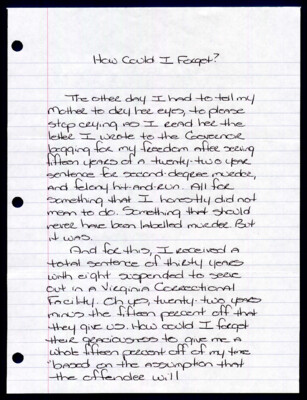 How Could I Forget?
The other day I had to tell my
Mother to dry her eyes, to please
stop crying as I read her the
letter I wrote to the Governor
begging for my freedom after seeing
fifteen years of a twenty-two year
sentence for second-degree murder,
and felony hit-and-run. All for
something that I honestly did not
mean to do. Something that should
never have been labelled murder. But
it was.
And for this, I received a
total sentence of thirty years
with eight suspended to serve
out in a Virginia Correctional
Facility. Oh yes, twenty-two years
minus the fifteen percent off that
they give us. How could I forget
their graciousness to give me a
whole fifteen percent off of my time
"based on the assumption that
the offender will